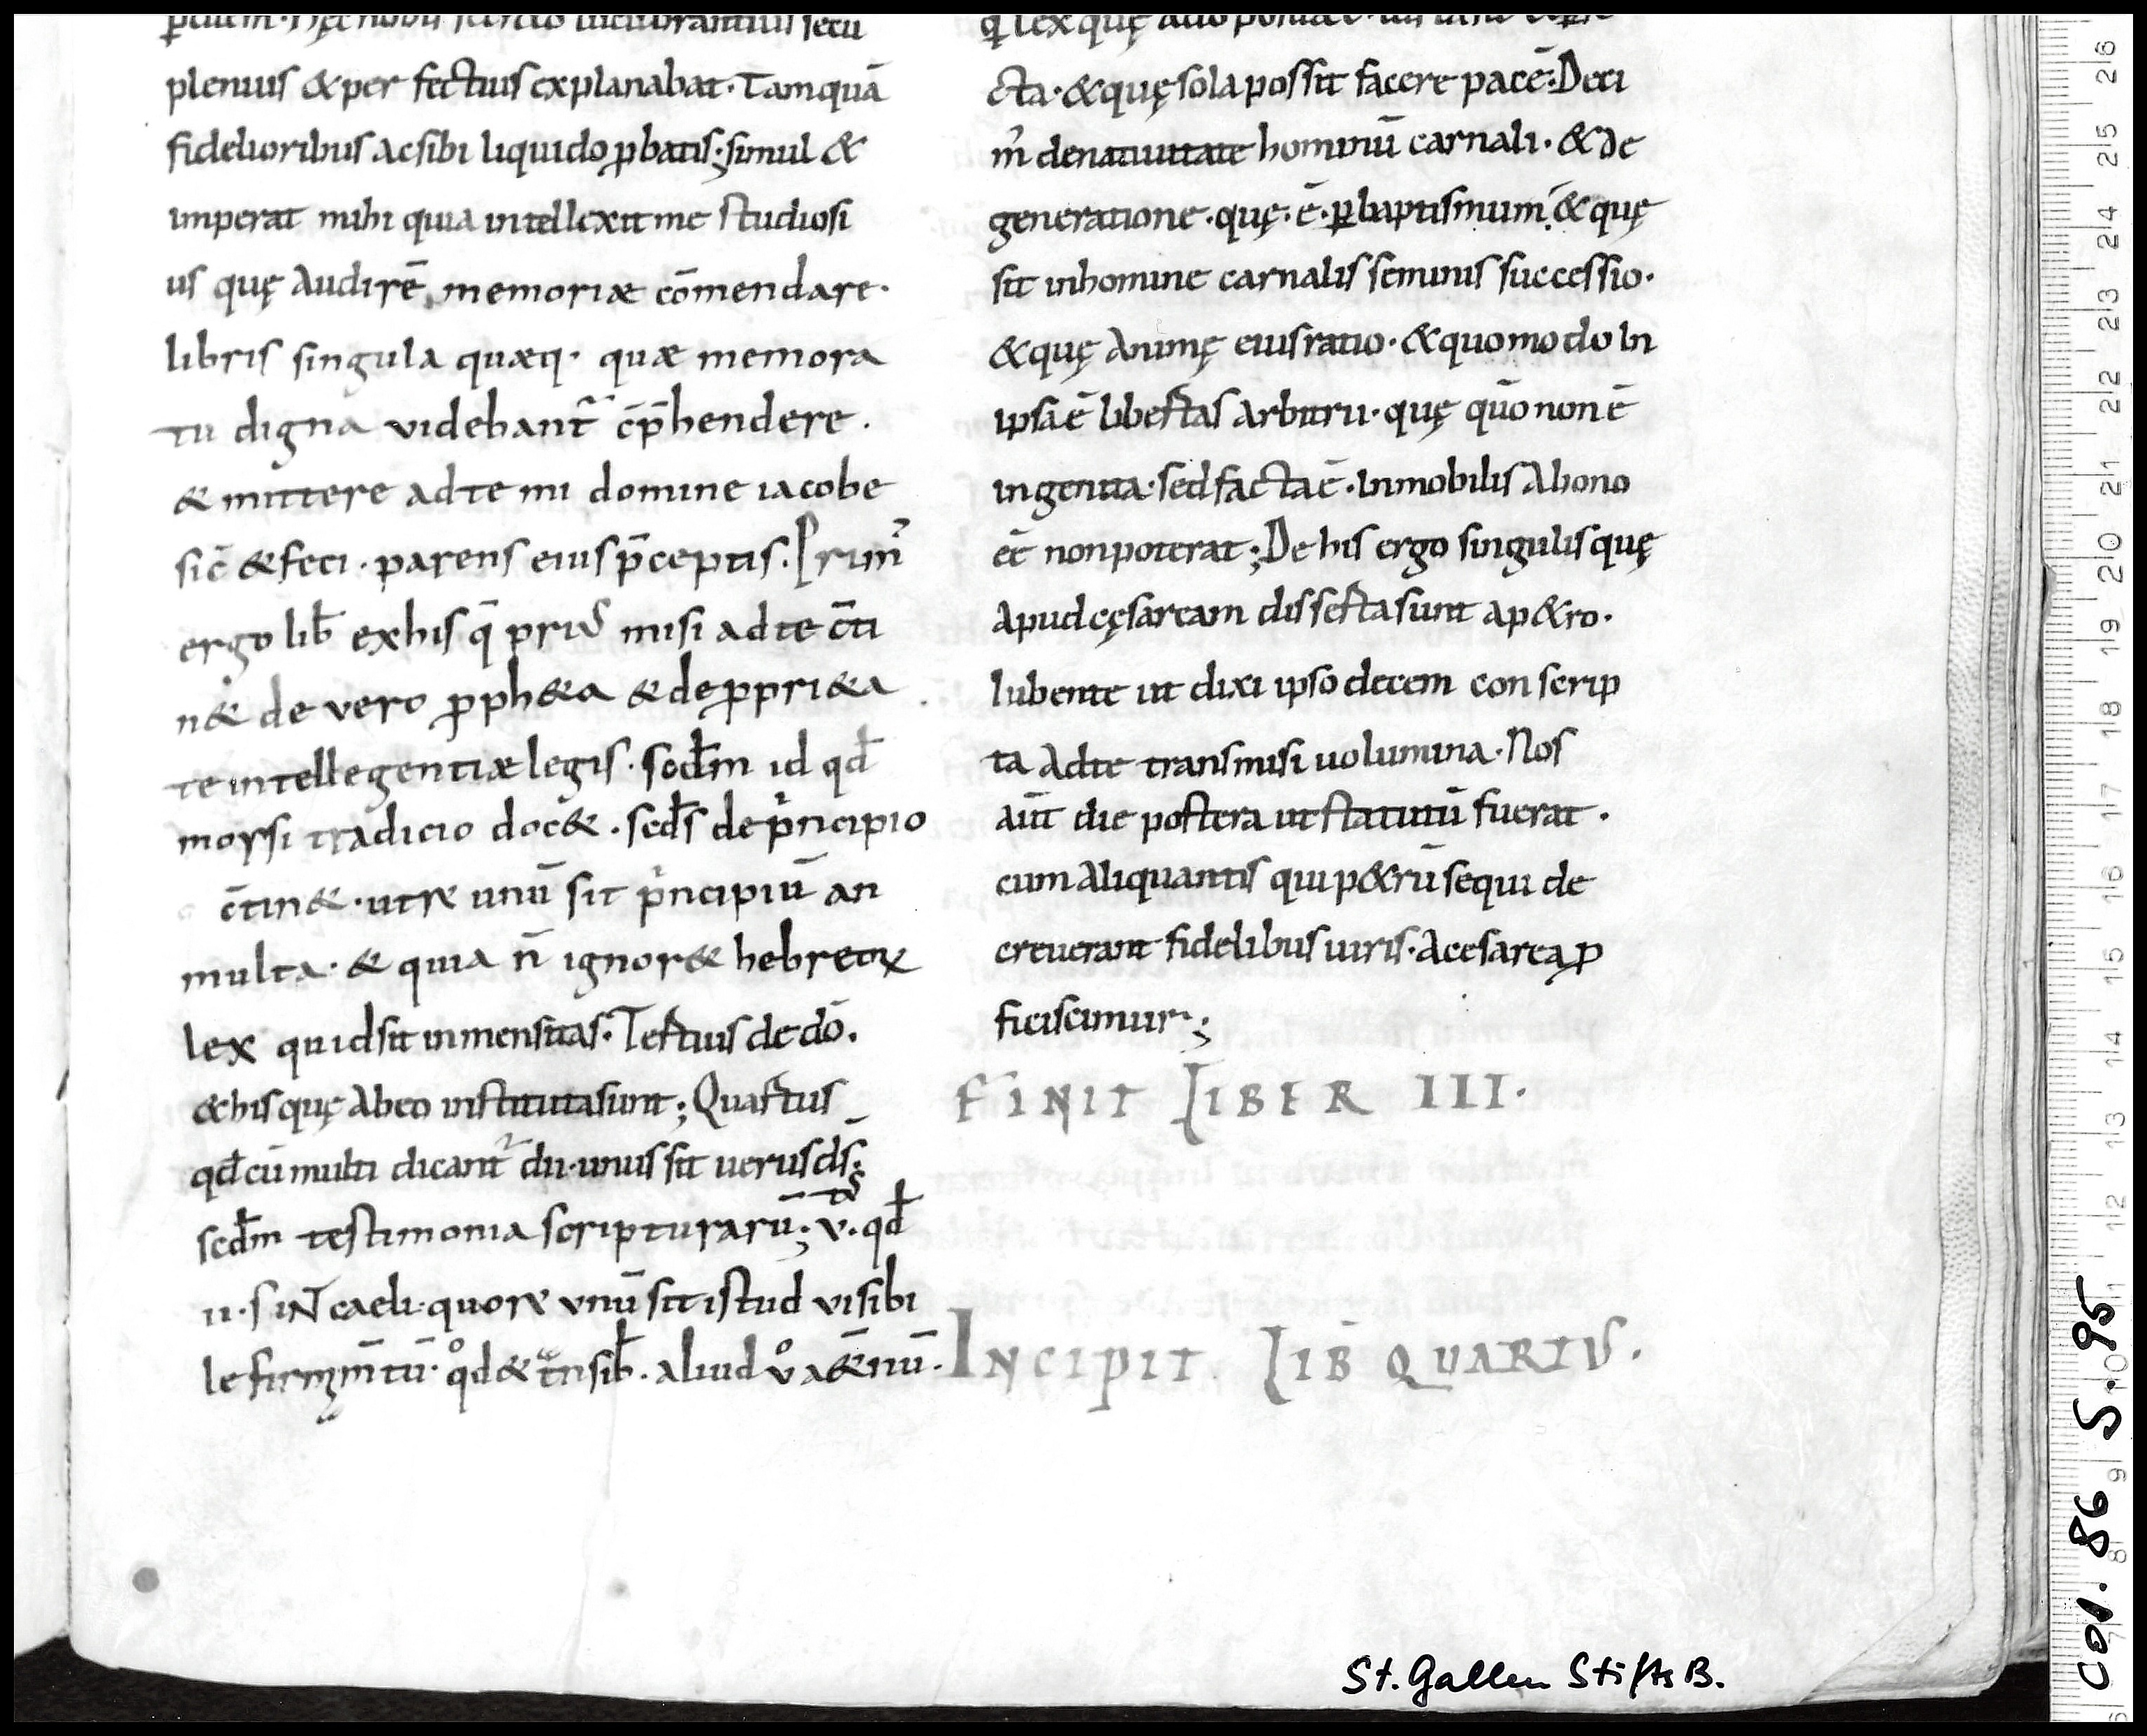 plenius & per fectius explanabat · Tamquā
fidelioribus ac sibi liquido ꝓbatis ; simul &
imperat mihi quia intellexit me studiosi
us quę audirē, memoriæ cōmendare ·
libris singula quæq · quæ memora
tu digna videbant̃ c̄p̄hendere .
& mittere ad te mi domine iacobe
sic̄ & feci · parens eius p̄ceptis . Prim̃
ergo lib̄ ex his q̄ priꝰ misi ad te c̄ti
n& de vero ꝓph&a & de ꝓpri&a
te intellegentiæ legis · scd̄m id qd̄
moysi tradicio doc& . scd̄s de p̍ncipio
c̄tin& · utrꝝ unū sit p̍ncipiū an
multa · & quia n̄ ignor& hebreoꝝ
lex quid sit inmensitas · Tertius de dō .
& his quę ab eo instituta sunt ; Quartus
qd̄ cū multi dicant̃ dii · unus sit uerus d̄s ;
scd̄m testimonia scripturarū ; v · tꝰ qd̄
ii · sint caeli · quorꝝ vnū sit istud visibi
le firmam̄tū · qͦd & t̄nsib̄ . aliud vͦ a&̄nū ·
cta · & quę sola possit facere pacē ; Deci
m̃ de natiuitate hominū carnali · & de
generatione · quę · ē · ꝑ baptismum ; & quę
sit in homine carnalis seminis successio ·
& quę animę eius ratio · & quomodo in
ipsa ē libertas arbitrii · quę qūo non ē
ingenita · sed facta ē · inmobilis a bono
eē non poterat ; De his ergo singulis quę
apud cęsaream disserta sunt a p&ro ·
Iubente ut dixi ipso decem con scrip
ta ad te transmisi uolumina · Nos
aūt die postera ut statutū fuerat .
cum aliquantis qui p&rū sequi de
creuerant fidelibus uiris · a cesarea ꝓ
ficiscimur ;
FINIT LIBER III ·
INCIPIT LIB̄ QUARTUS .
St. Gallen Stifts B.
Cod. 86 S. 95